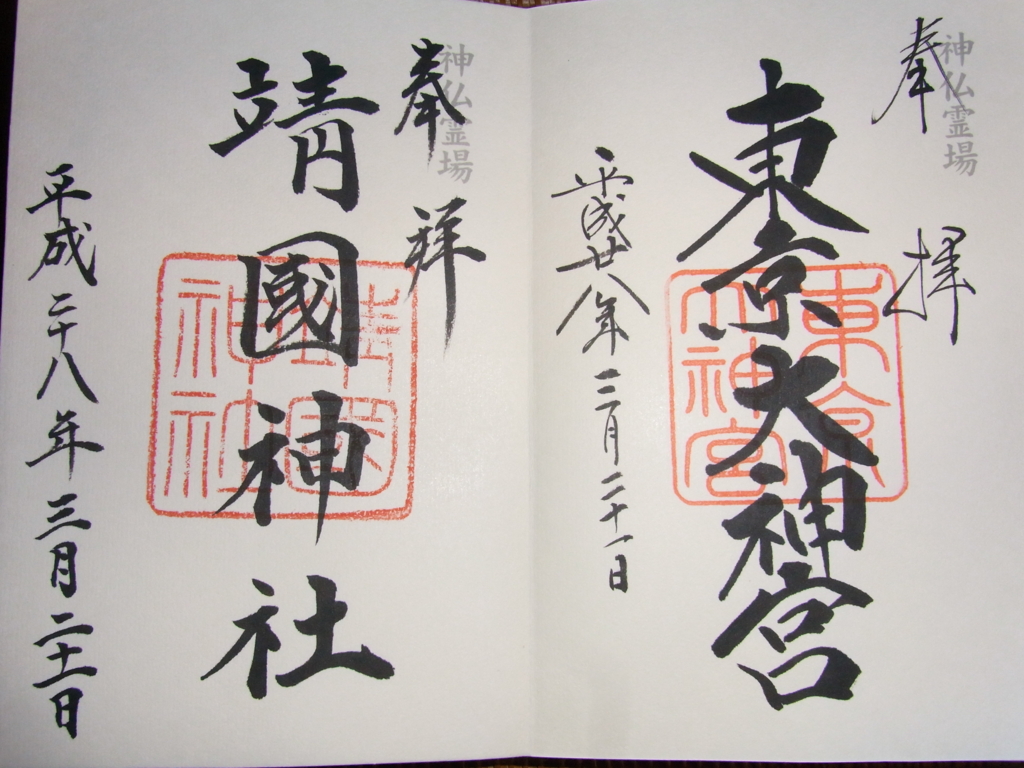 神仏霊場
奉拝
東京大神宮
東京大神宮
平成廿八年三月二十一日
神仏霊場
奉拝
靖國神社
靖國神社
平成二十八年三月二十一日